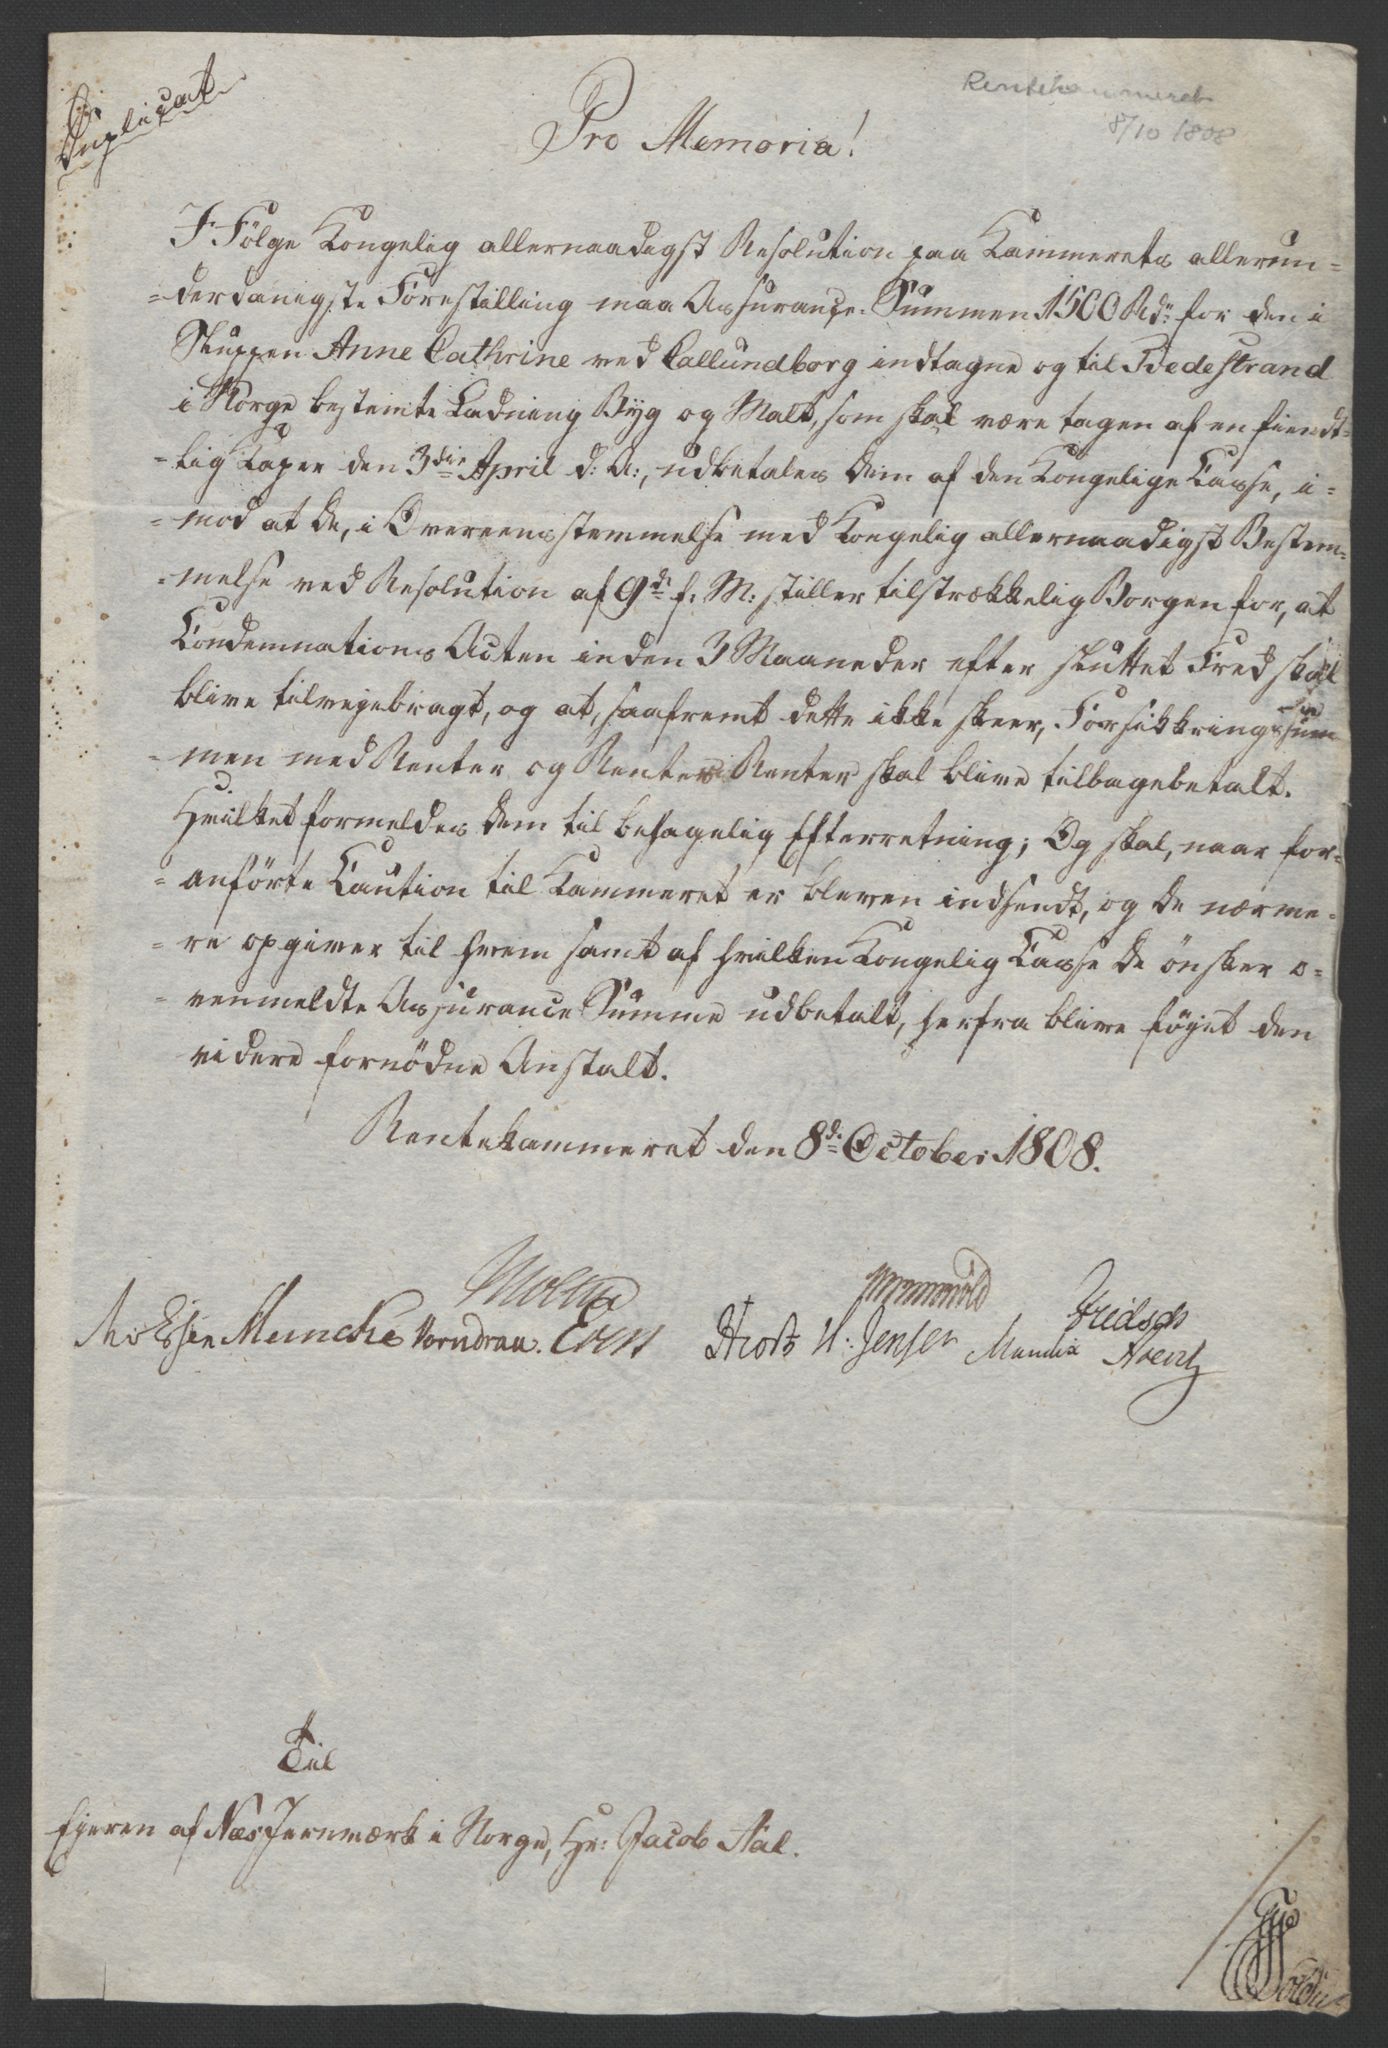 Duplicat
Rentekammeret
8/10 1808
Pro Memoria!
I Fölge Kongelig allernaadigst Resolution paa Kammerets allerun-
-derdanigste Forestilling maa Assurance-Summen 1500 Rdr for den i
Sluppen Anne Cathrine ved Callundborg indtagne og til Tvedestrand
i Norge bestemte Ladning Byg og Malt, som skal være tagen af en fiendt-
-lig Caper den 3die April d: A:, udbetales Dem af den Kongelige Casse, i-
-mod at De, i Overeensstemmelse med Kongelig allernaadigst Bestem-
-melse ved Resolution af 9de f. M: stiller tilstrækkelig Borgen for, at
Condemnations Acten inden 3 Maaneder efter sluttet Fred skal
blive tilvejebragt, og at, saafremt dette ikke skeer, Forsikkringssum
-men med Renter og Renters Renter skal blive tilbagebetalt.
Hvilket formeldes Dem til behagelig Efterretning; Og skal, naar for-
-anförte Caution til Kammeret er bleven indsendt, og De nærme-
-re opgiver til hvem samt af hvilken Kongelig Casse De önsker o-
-venmeldte Assurance Summe udbetalt, herfra blive föyet den
videre fornödne Anstalt.
Rentekammeret den 8de October 1808.
Moltke
Essen Muncke Vorndran. Evers H: Jensen Mandix
Til
Ejeren af Næs Jernværk i Norge, Hr: Jacob Aal.